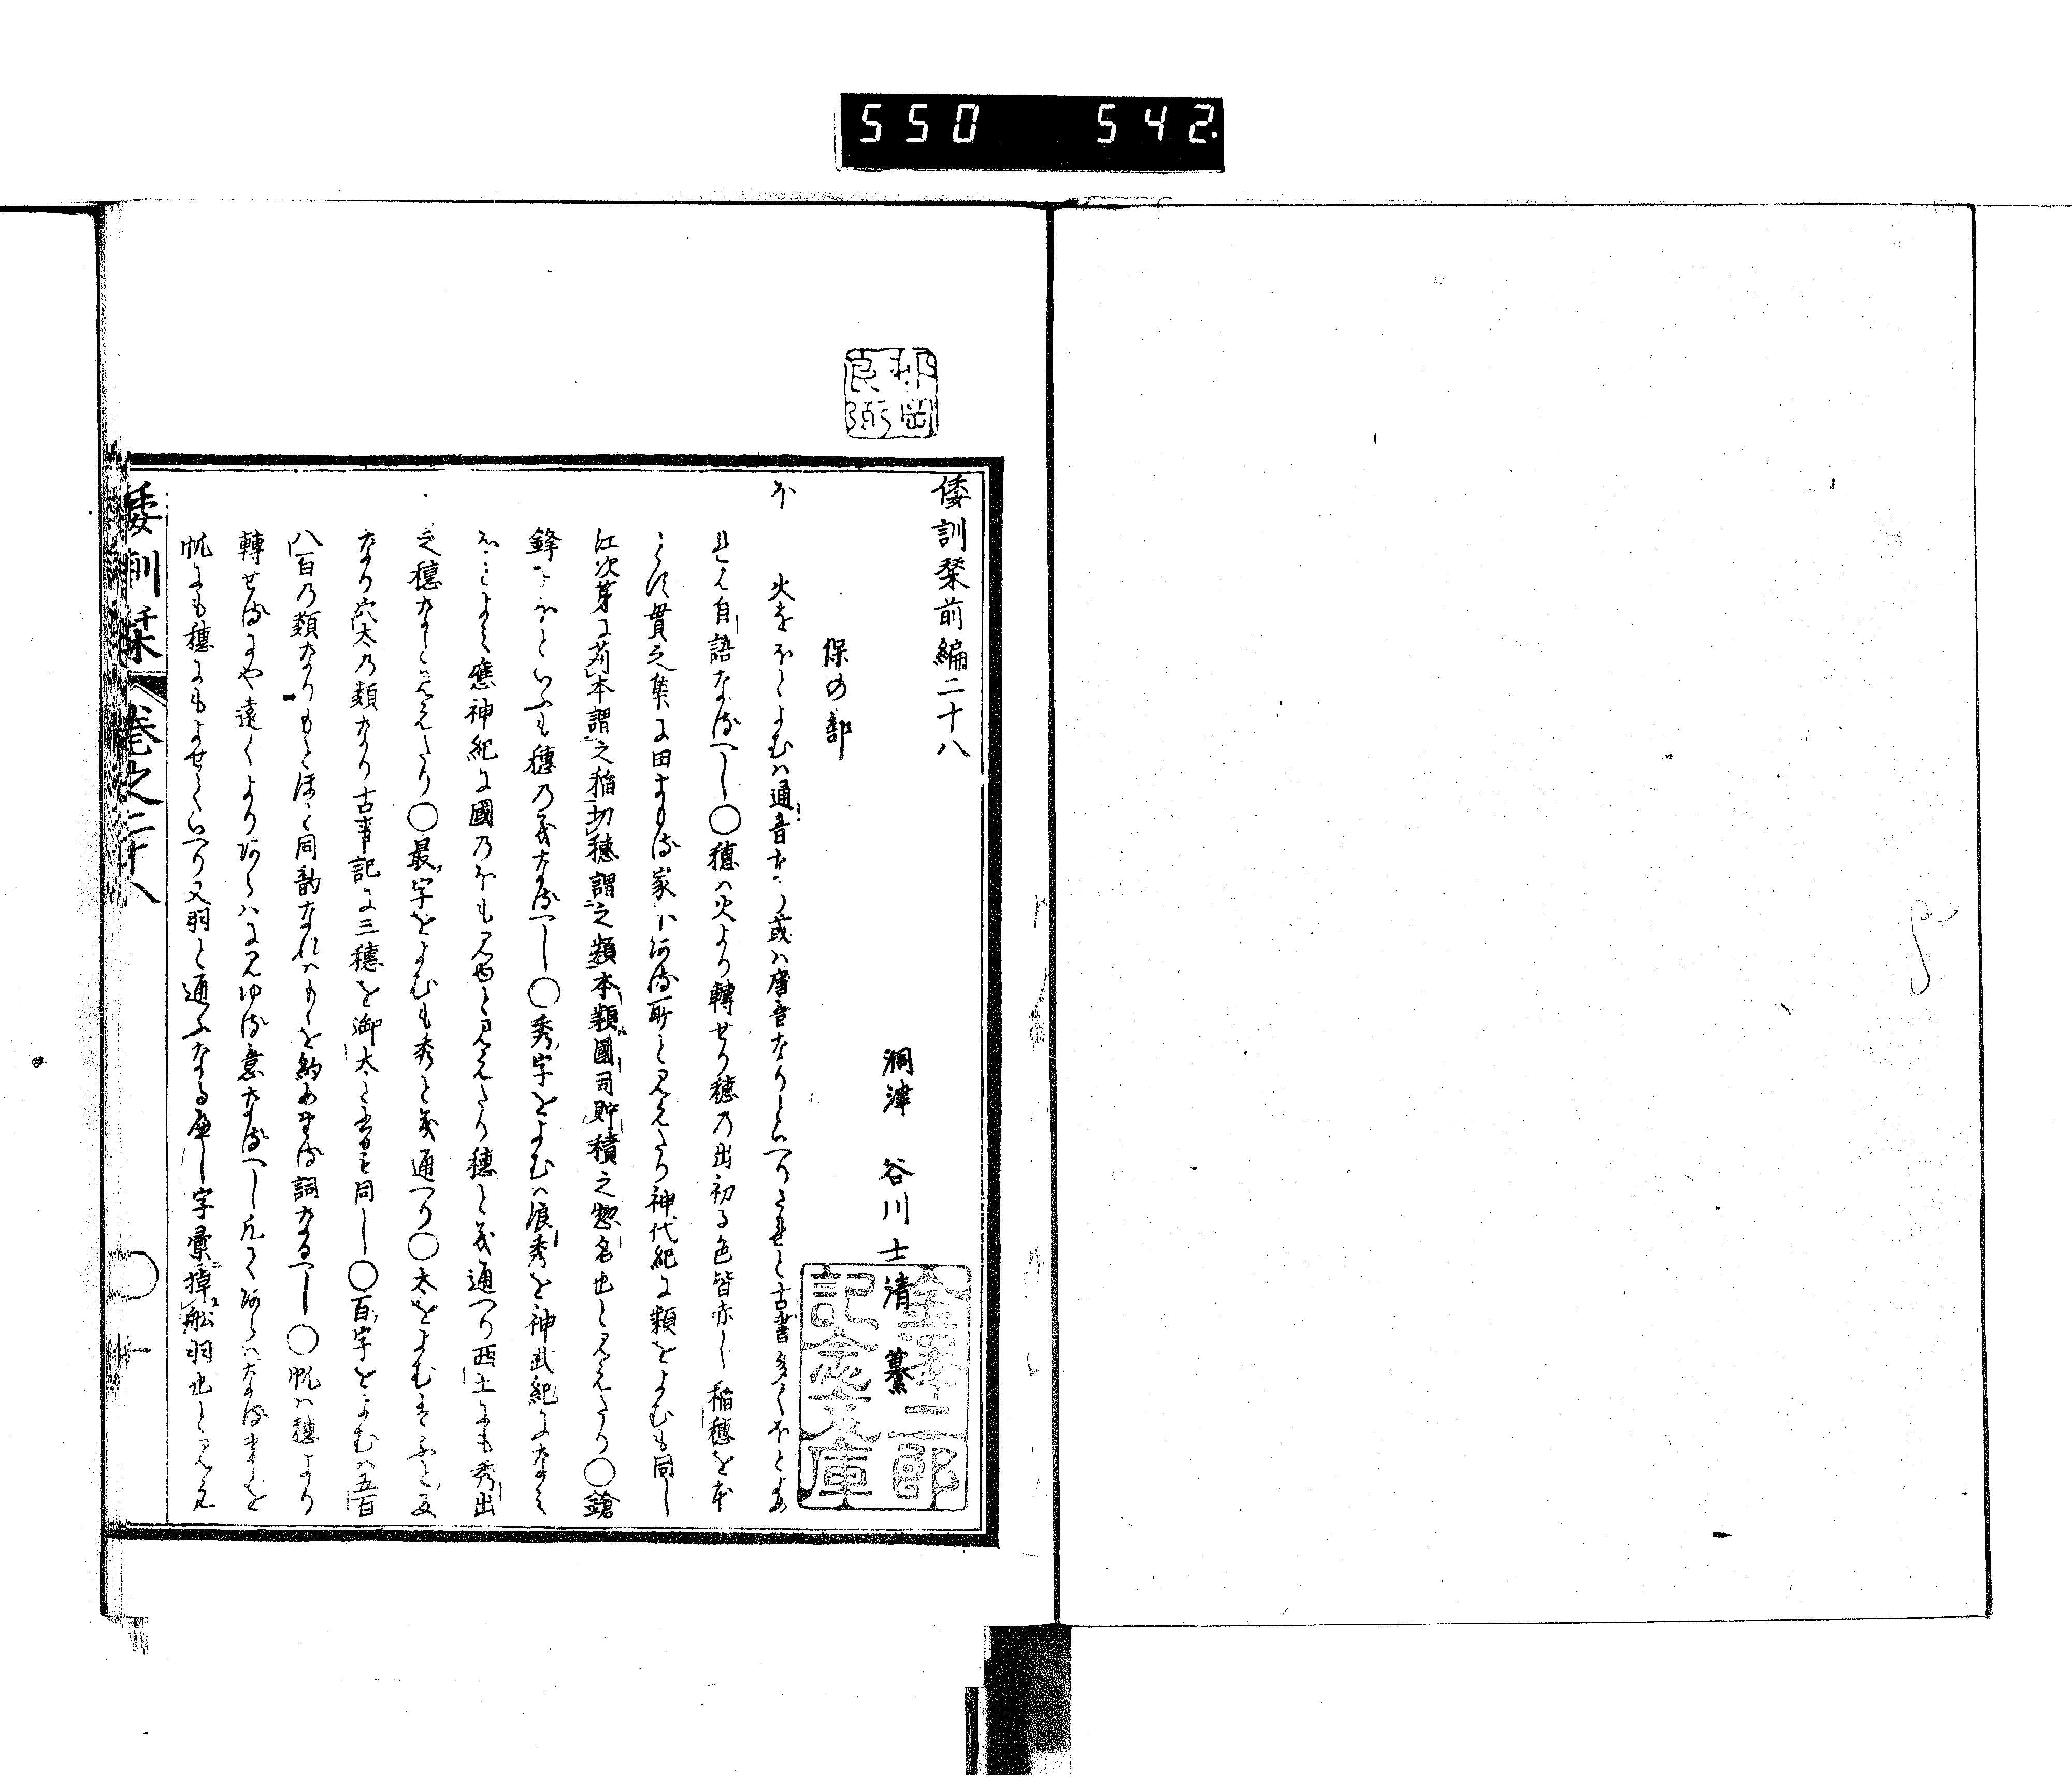 550 542
倭訓栞前編二十八
洞津 谷川士清纂
保の部
ほ 火をほとよむハ通音なり或ハ唐音なりといへりされと古書多くほとよめ
れは自語なるへし○穂ハ火より轉せり穂の出初る色皆赤し稲穂を本
とす貫之集に田まもる家ある所と見えたり神代紀に類をよむも同し
江次第に苅本謂之稲切穂謂之類本類國司貯積之惣名也と見えたり○鎗
鋒をほといふも穂の義なるへし○秀字をよむハ浪秀を神武紀になみ
ほとよみ應神紀に國のほも見ゆと見えたり穂と義通へり西土にも秀出
之穂なと見えたり○最字をよむも秀と義通へり○太をよむはふと反
なり穴太の類なり古事記に三穂を御太と書る同し○百字をよむハ五百
八百の類なりもとほと同韵なれハもゝを約めたる詞なるへし○帆ハ穂より
轉せるにや遠くよりあらハに見ゆる意なるへし凡てあらハなるましを
帆にも穂にもよせていへり又羽と通ふなるへし字彙ニ掉ハ舩羽也と見え
倭訓栞 巻之二十八 ○ 一
郡岡良弼
金澤二郎記念文庫